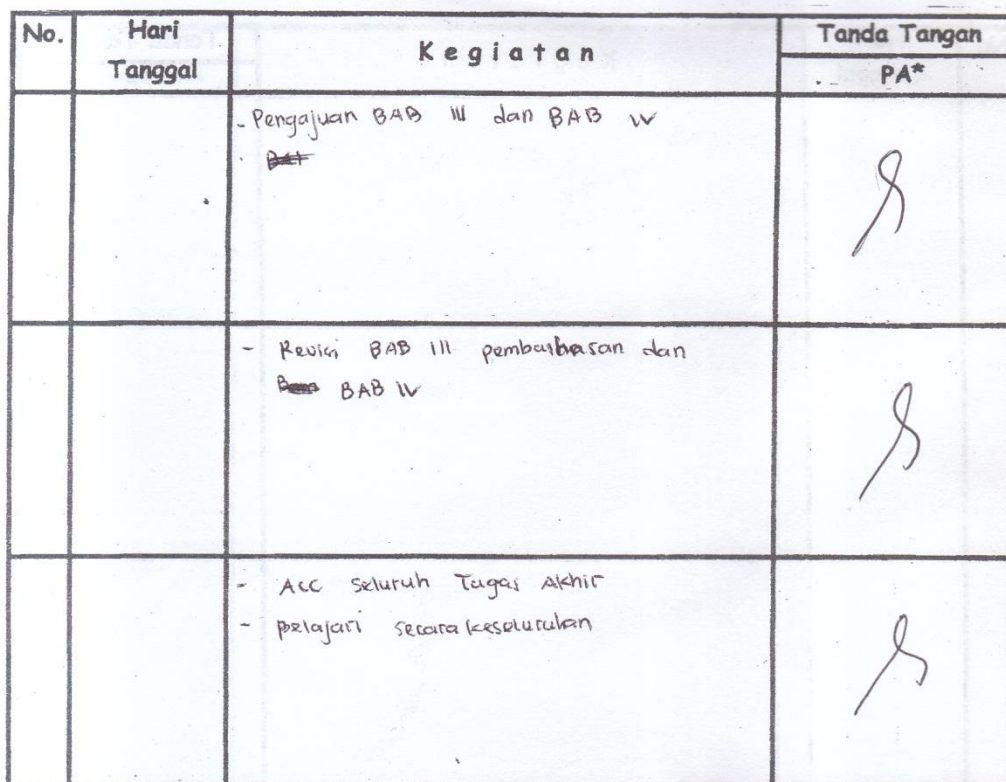 No.
Hari
Tanggal
Kegiatan
Tanda Tangan
PA*
- Pengajuan BAB III dan BAB IV
- Revisi BAB III pembahasan dan
BAB IV
- Acc Seluruh Tugas Akhir
- pelajari secara keseluruhan